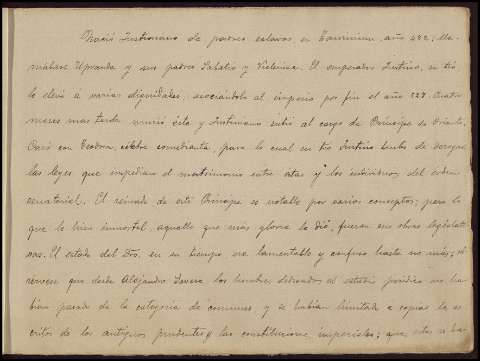 Nació Justiniano de padres eslavos en Tauresium, año 482; lla-
mábase Upranda y sus padres Sabatio y Vigleniza. El emperador Justino, su tío
le elevó á varias dignidades, asociándole al imperio por fin el año 527. Cuatro
meses mas tarde murió este y Justiniano subió al cargo de Príncipe de Oriente.
Casó con Teodora, célebre comedianta, para lo cual su tío Justino hubo de derogar
las leyes que impedían el matrimonio entre estas y los individuos del orden
senatorial. El reinado de este Príncipe es notable por varios conceptos; pero lo
que le hizo inmortal, aquello que más gloria le dió, fueron sus obras legislati-
vas. El estado del Dro. en su tiempo era lamentable y confuso hasta no más; ob
sérvese que desde Alejandro Severo los hombres dedicados al estudio jurídico no ha-
bían pasado de la categoría de comunes y se habían limitado a copiar los es-
critos de los antiguos prudentes y las constituciones imperiales; que estas se ha-